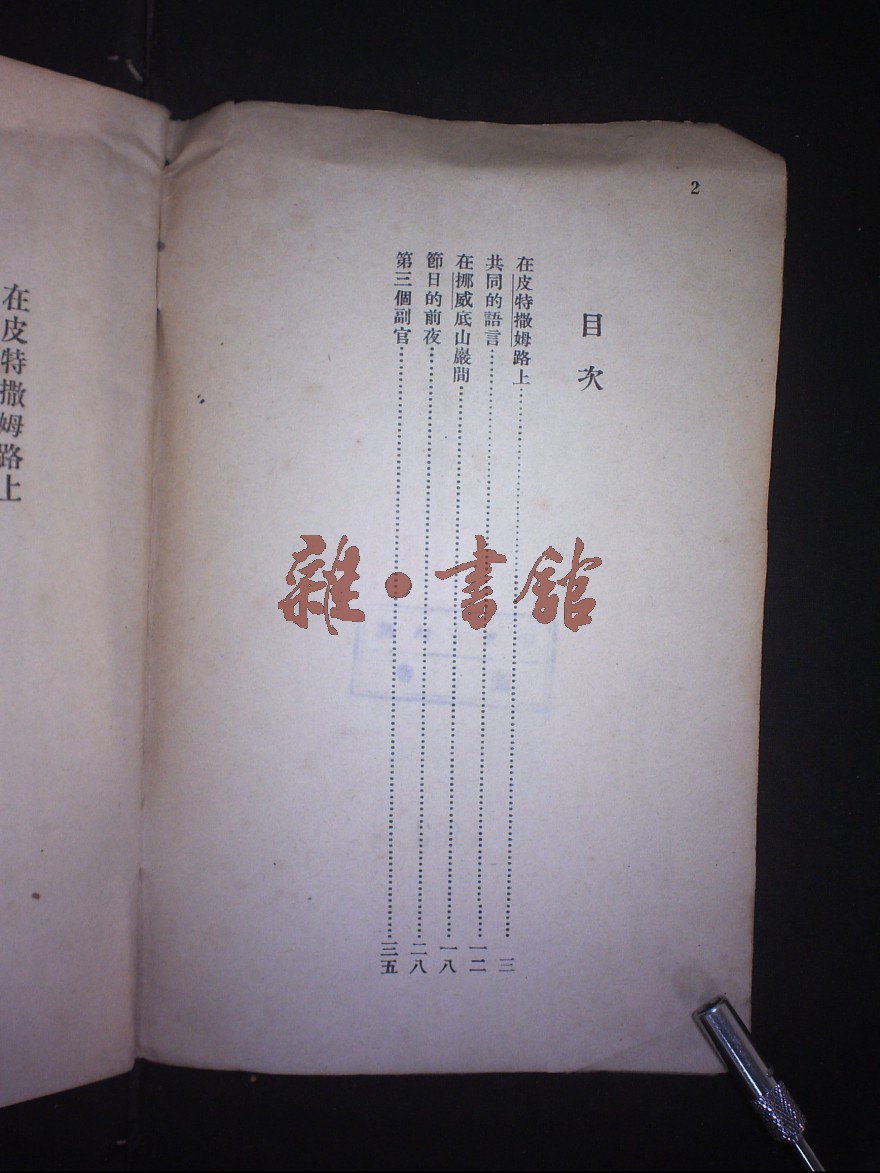 2
目次
在皮特撒姆路上……三
共同的語言……一二
在挪威底山巖間……一八
節日的前夜……二八
第三個副官……三五
在皮特撒姆路上
雜·書館